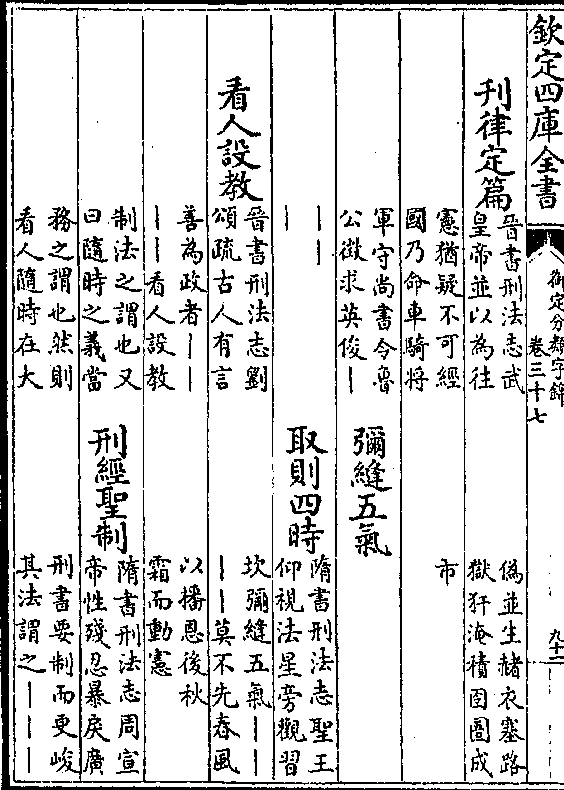 欽定四庫全書
御定分類字錦
卷三十七
九十二
刊律定篇
晉書刑法志武
皇帝並以為往
憲猶疑不可經
國乃命車騎將
軍守尚書令魯
公徵求英俊丨
丨丨
丨
看人設教
晉書刑法志劉
頌疏古人有言
善為政者丨丨
丨丨看人設教
制法之謂也又
曰隨時之義當
務之謂也然則
看人隨時在大
偽並生赭衣塞路
獄犴淹積囹圄成
市
彌縫五氣
取則四時
隋書刑法志聖王
仰視法星旁觀習
坎彌縫五氣丨丨
丨丨莫不先春風
以播恩後秋
霜而動憲
刑經聖制
隋書刑法志周宣
帝性殘忍暴戾廣
刑書要制而更峻
其法謂之丨丨丨